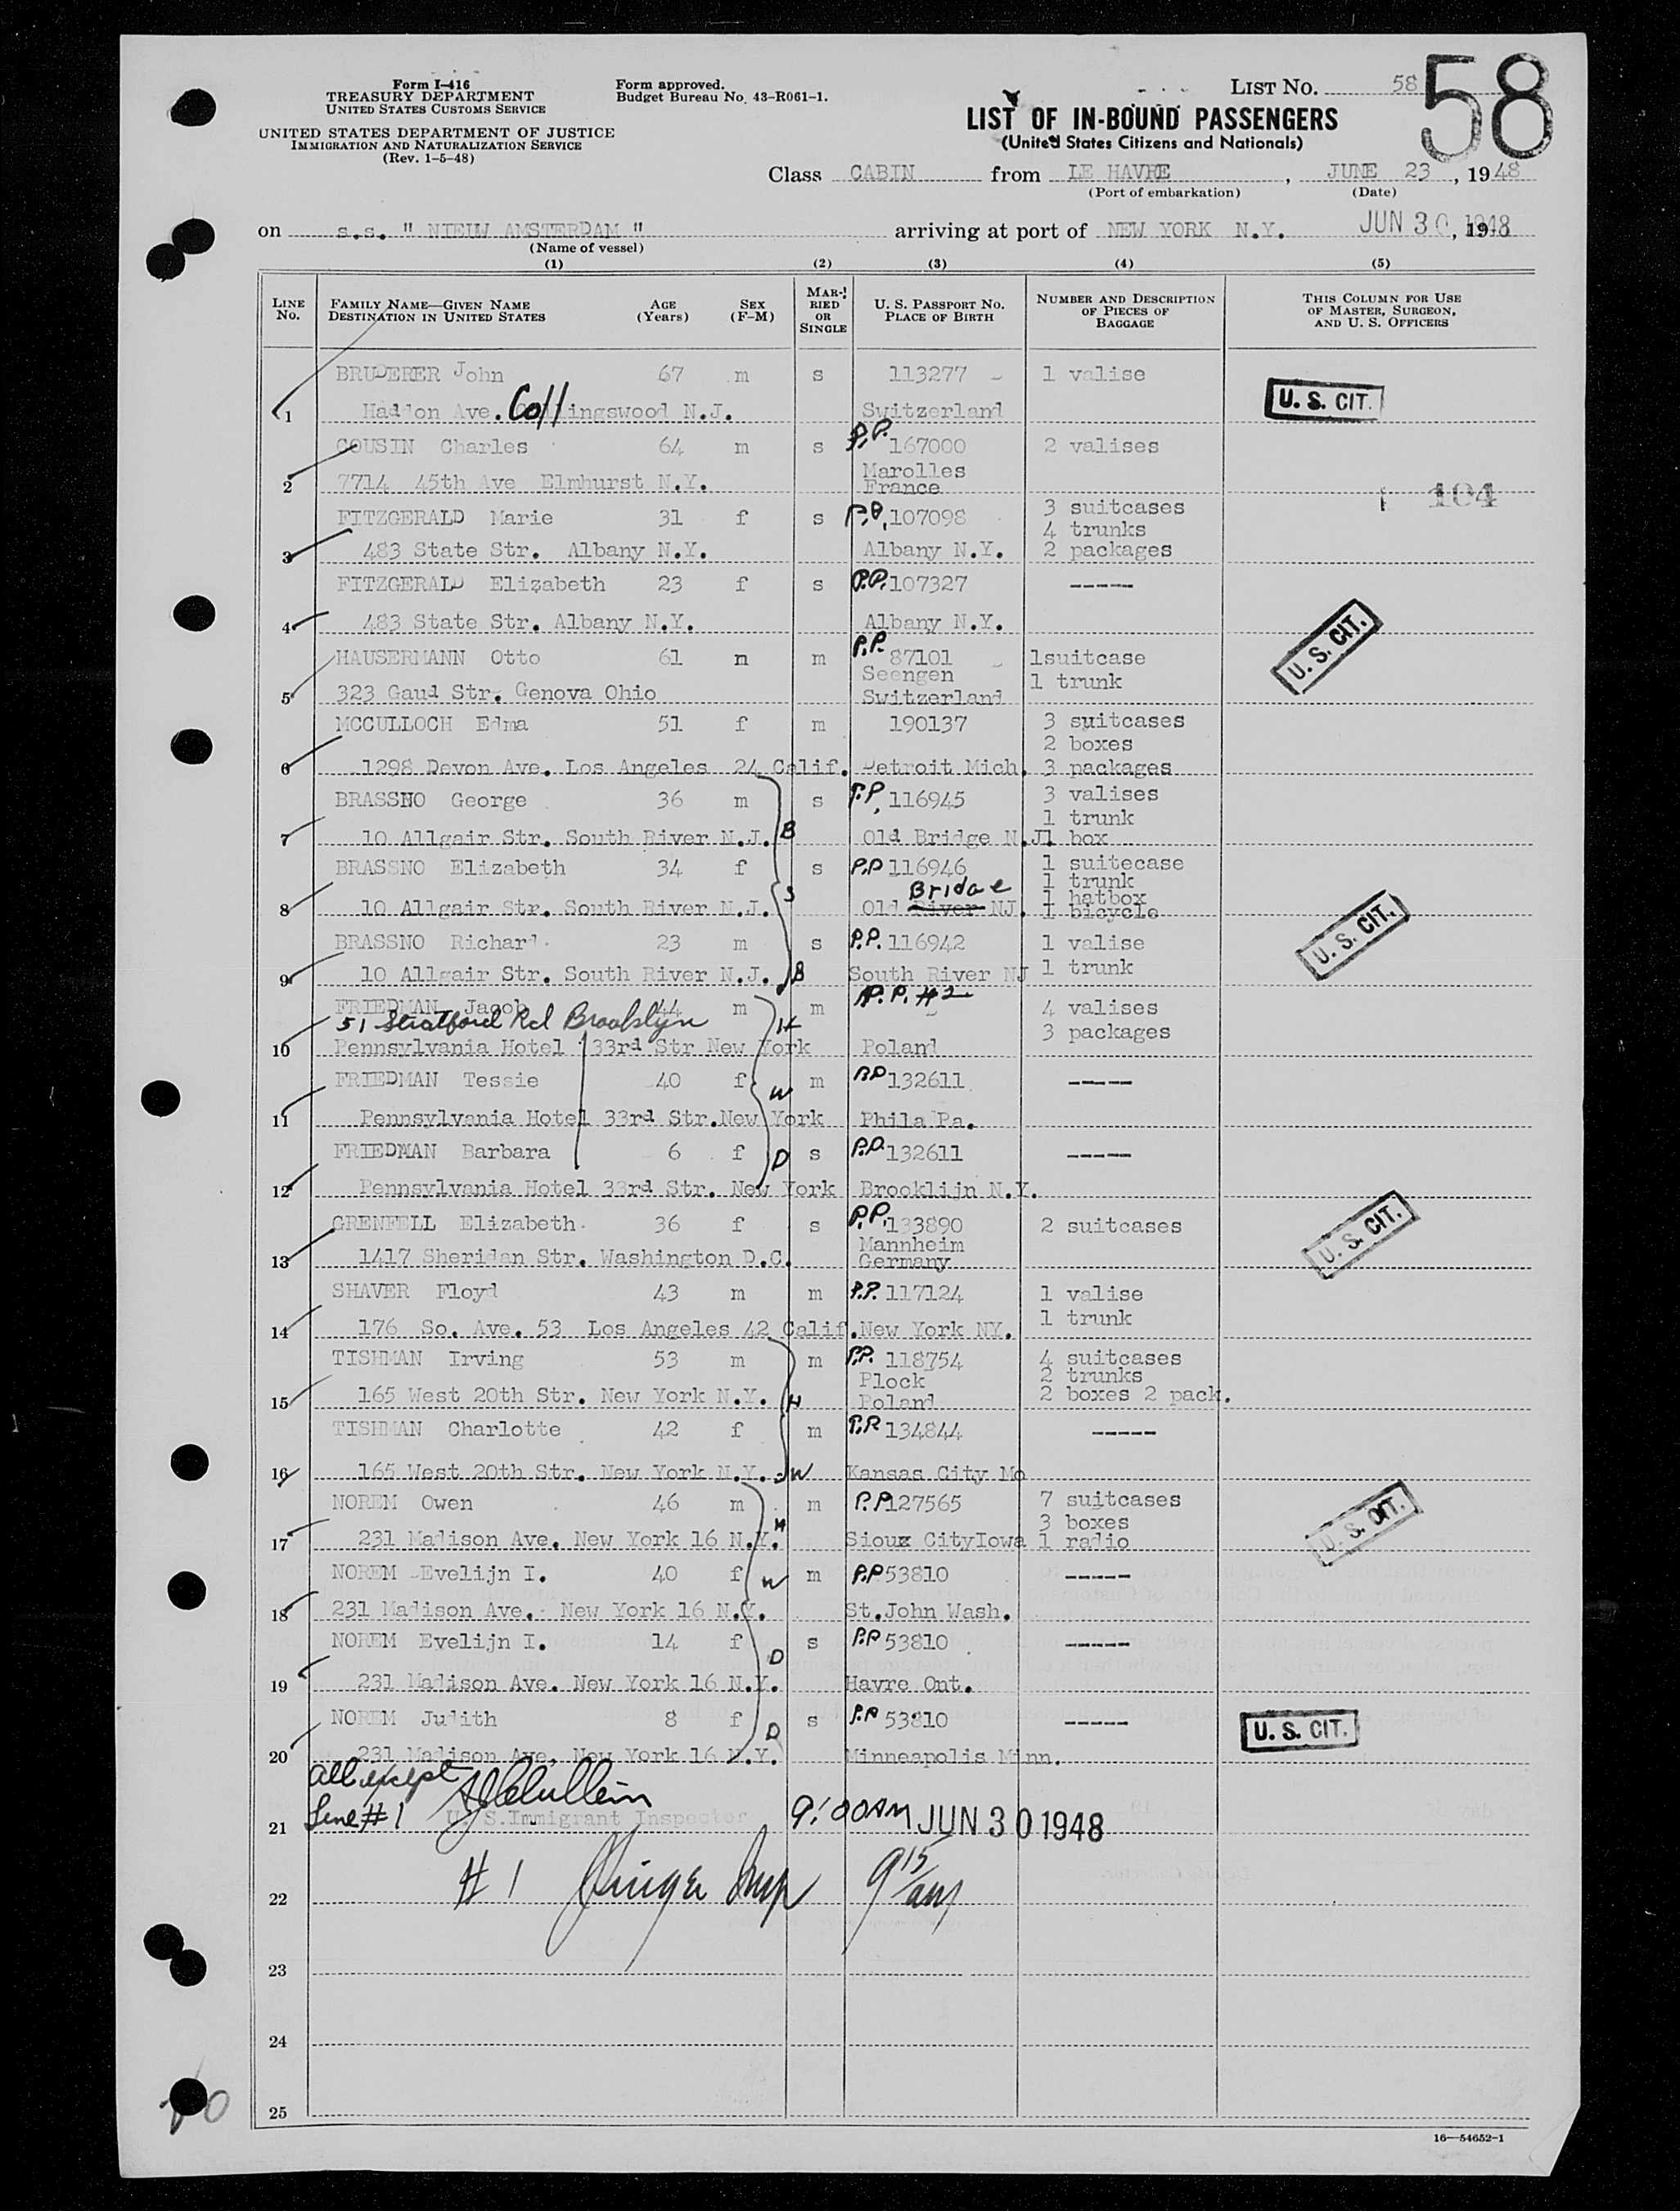 Form I-416
TREASURY DEPARTMENT
UNITED STATES CUSTOMS SERVICE
UNITED STATES DEPARTMENT OF JUSTICE
IMMIGRATION AND NATURALIZATION SERVICE
(Rev. 1-5-48)
Form approved.
Budget Bureau No. 43-R061-1.
LIST NO. 58
58
LIST OF IN-BOUND PASSENGERS
(United States Citizens and Nationals)
Class CABIN from LE HAVRE, JUNE 23, 1948
(Port of embarkation) (Date)
on s.s. " NIEUW AMSTERDAM " arriving at port of NEW YORK N.Y. JUN 30, 1948
(Name of vessel)
(1) (2) (3) (4) (5)
LINE NO.
FAMILY NAME—GIVEN NAME
DESTINATION IN UNITED STATES
AGE (Years)
SEX (F-M)
MARRIED OR SINGLE
U. S. PASSPORT NO.
PLACE OF BIRTH
NUMBER AND DESCRIPTION OF PIECES OF BAGGAGE
THIS COLUMN FOR USE OF MASTER, SURGEON, AND U. S. OFFICERS
BRUDERER John 67 m s 113277 1 valise
1 Haddon Ave. Collingswood N.J. Switzerland U. S. CIT.
COUSIN Charles 64 m s P.P. 167000 2 valises
2 7714 45th Ave Elmhurst N.Y. Marolles France 104
FITZGERALD Marie 31 f s P.P. 107098 3 suitcases
4 trunks
3 483 State Str. Albany N.Y. Albany N.Y. 2 packages
FITZGERALD Elizabeth 23 f s P.P. 107327 -----
4 483 State Str. Albany N.Y. Albany N.Y. U. S. CIT.
HAUSERMANN Otto 61 m m P.P. 87101 1suitcase
5 323 Gaud Str. Genova Ohio Seengen Switzerland 1 trunk
MCCULLOCH Edma 51 f m 190137 3 suitcases
2 boxes
6 1298 Devon Ave. Los Angeles 24 Calif. Detroit Mich. 3 packages
BRASSNO George 36 m s P.P. 116945 3 valises
1 trunk
7 10 Allgair Str. South River N.J. B Old Bridge N.J. 1 box
BRASSNO Elizabeth 34 f s P.P 116946 1 suitecase
1 trunk
Bridge 1 hatbox
8 10 Allgair Str. South River N.J. S Old River NJ. 1 bicycle
BRASSNO Richard 23 m s P.P. 116942 1 valise U. S. CIT.
9 10 Allgair Str. South River N.J. B South River NJ 1 trunk
FRIEDMAN Jacob 44 m m P.P. #2 4 valises
51 Stratford Rd Brooklyn H 3 packages
10 Pennsylvania Hotel 33rd Str New York Poland
FRIEDMAN Tessie 40 f W m PP 132611 -----
11 Pennsylvania Hotel 33rd Str.New York Phila Pa.
FRIEDMAN Barbara 6 f D s P.P. 132611 -----
12 Pennsylvania Hotel 33rd Str. New York Brooklijn N.Y.
GRENFELL Elizabeth 36 f s P.P. 133890 2 suitcases U. S. CIT.
13 1417 Sheridan Str. Washington D.C. Mannheim Germany
SHAVER Floyd 43 m m P.P. 117124 1 valise
14 176 So. Ave. 53 Los Angeles 42 Calif. New York NY. 1 trunk
TISHMAN Irving 53 m m P.P. 118754 4 suitcases
Plock 2 trunks
15 165 West 20th Str. New York N.Y. H Poland 2 boxes 2 pack.
TISHMAN Charlotte 42 f m P.P. 134844 -----
16 165 West 20th Str. New York N.Y. W Kansas City Mo
NOREM Owen 46 m m P.P. 127565 7 suitcases U. S. CIT.
3 boxes
17 231 Madison Ave. New York 16 N.Y. H Sioux CityIowa 1 radio
NOREM Evelijn I. 40 f W m P.P 53810 -----
18 231 Madison Ave. New York 16 N.Y. St.John Wash.
NOREM Evelijn I. 14 f D s P.P 53810 -----
19 231 Madison Ave. New York 16 N.Y. Havre Ont.
NOREM Judith 8 f D s P.P 53810 ----- U. S. CIT.
20 231 Madison Ave. New York 16 N.Y. Minneapolis Minn.
All except
Line #1
21 U. S. Immigrant Inspector 9:00AM JUN 30 1948
22 #1 Insp 9 15/am
23
24
25
16—54652-1